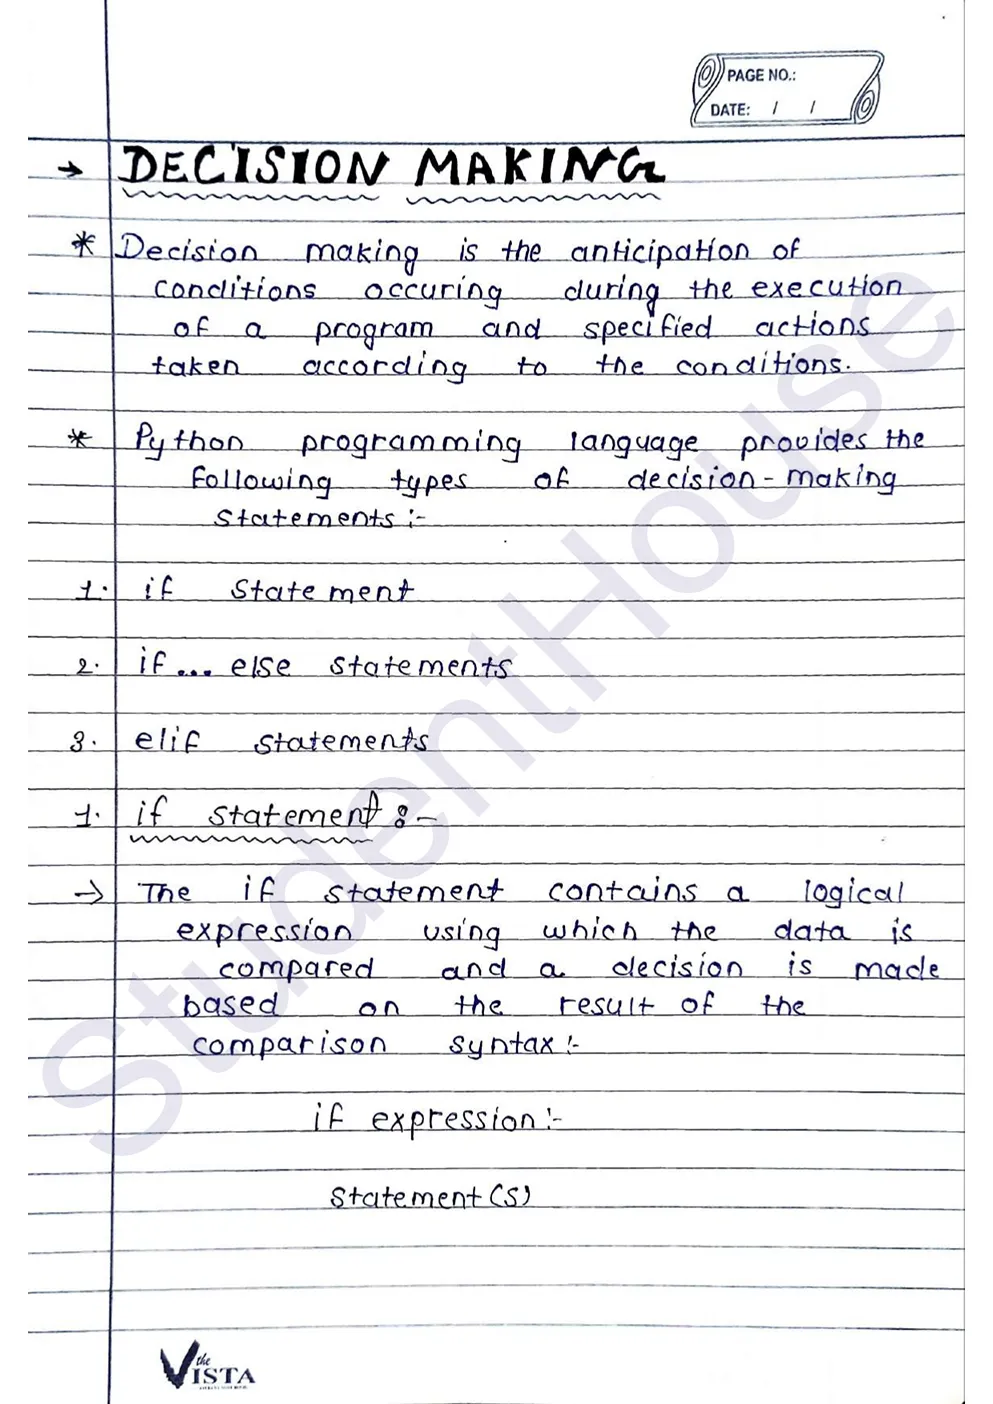 PAGE NO.:
DATE: / /
→ DECISION MAKING
* Decision making is the anticipation of
conditions occuring during the execution
of a program and specified actions
taken according to the conditions.
* Python programming language provides the
following types of decision-making
statements :-
1. if statement
2. if... else statements
3. elif statements
1. if statement :-
→ The if statement contains a logical
expression using which the data is
compared and a decision is made
based on the result of the
comparison syntax :-
if expression :-
Statement(s)
StudentHouse
the
VISTA